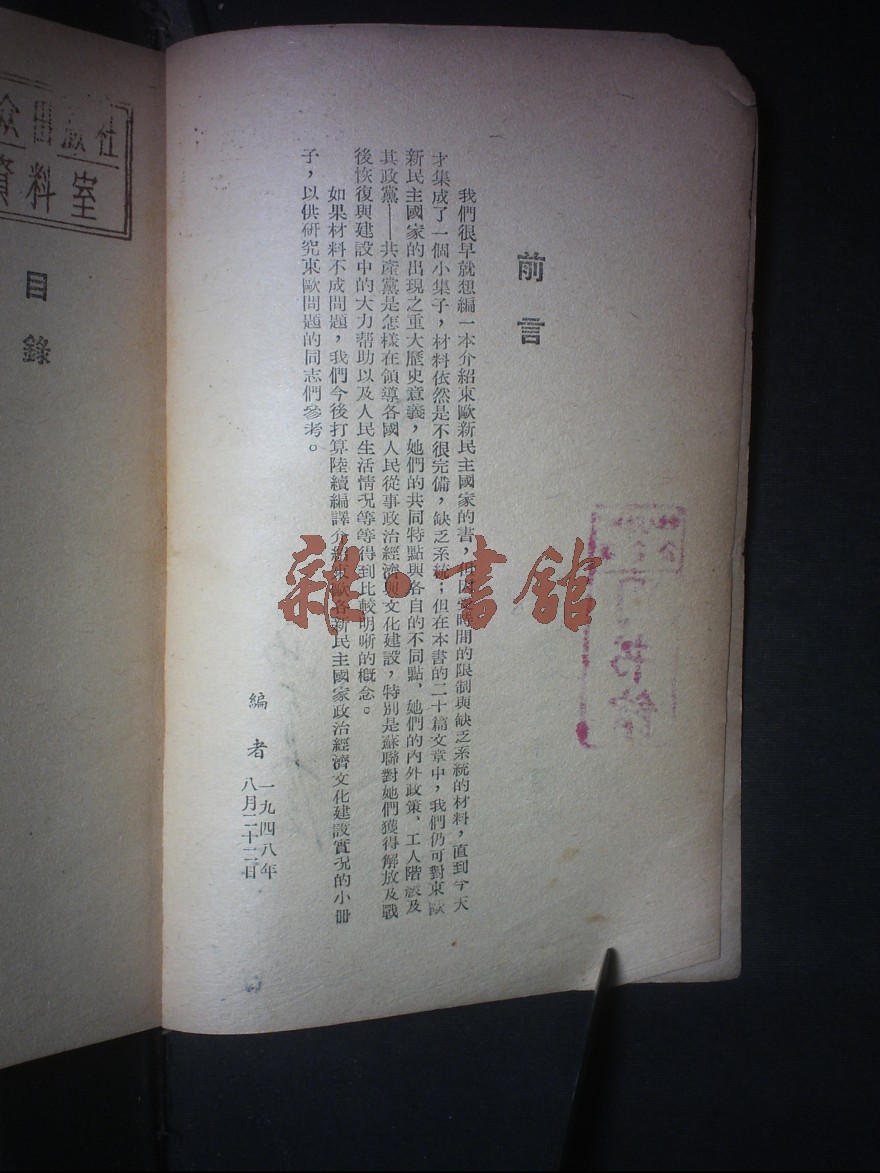 前言
我們很早就想編一本介紹東歐新民主國家的書，但因受時間的限制與缺乏系統的材料，直到今天
才集成了一個小集子，材料依然是不很完備，缺乏系統；但在本書的二十篇文章中，我們仍可對東歐
新民主國家的出現之重大歷史意義，她們的共同特點與各自的不同點，她們的內外政策、工人階級及
其政黨——共產黨是怎樣在領導各國人民從事政治經濟與文化建設，特別是蘇聯對她們獲得解放及戰
後恢復與建設中的大力幫助以及人民生活情况等等得到比較明晰的概念。
如果材料不成問題，我們今後打算陸續編譯介紹東歐各新民主國家政治經濟文化建設實況的小册
子，以供研究東歐問題的同志們參考。
編者
一九四八年
八月二十二日
目錄
眾出版社
資料室
雜·書館